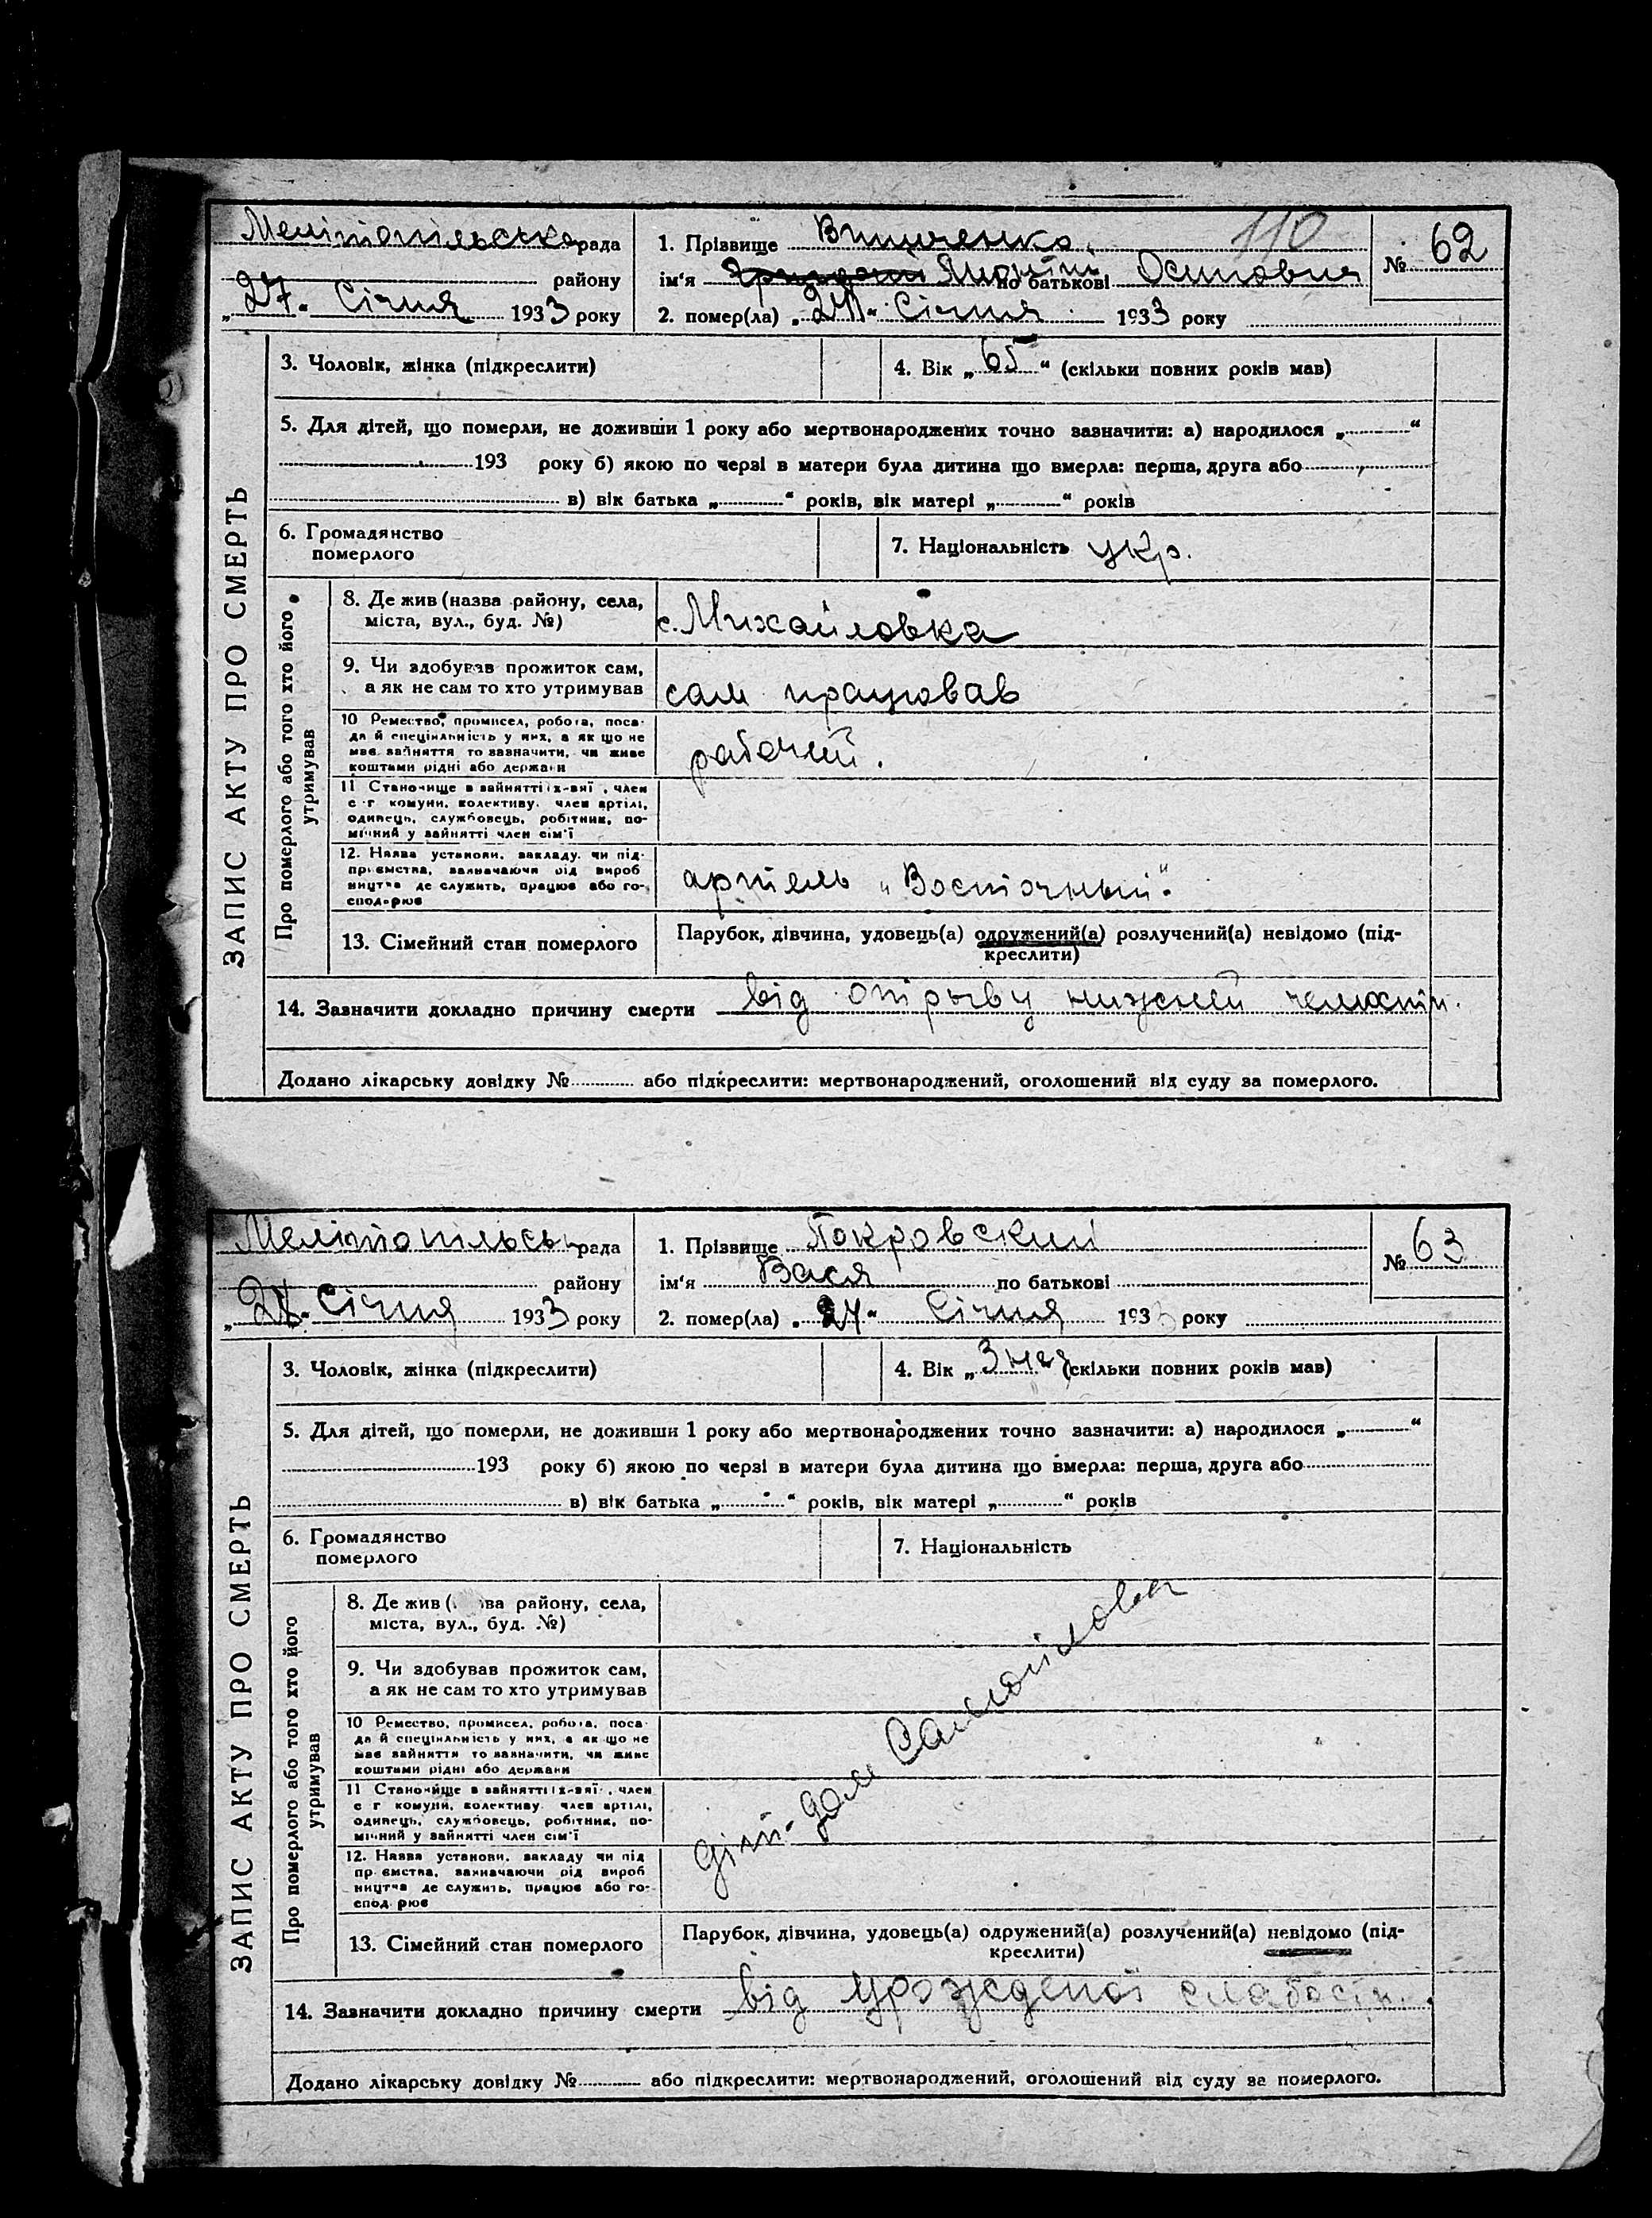 110
Мелітопільська рада
району
„27“ Січня 1933 року
1. Прізвище Вищенко
ім'я по батькові Осиповия
2. помер(ла) „27“ Січня 1933 року
№ 62
ЗАПИС АКТУ ПРО СМЕРТЬ
3. Чоловік, жінка (підкреслити)
4. Вік „65“ (скільки повних років мав)
5. Для дітей, що померли, не доживши 1 року або мертвонароджених точно зазначити: а) народилося „ “
193 року б) якою по черзі в матери була дитина що вмерла: перша, друга або
в) вік батька „ “ років, вік матері „ “ років
6. Громадянство
померлого
7. Національність укр.
Про померлого або того хто його
утримував
8. Де жив (назва району, села,
міста, вул., буд. №)
с. Михайловка
9. Чи здобував прожиток сам,
а як не сам то хто утримував
сам працював
10 Ремество, промисел, робота, поса-
да й спеціяльність у них, а як що не
має зайняття то зазначити, чи живе
коштами рідні або держави
рабочий.
11 Становище в зайнятті їх-вяї, член
с-г комуни, колективу, член артілі,
одинець, службовець, робітник, по-
мічний у зайнятті член сім'ї
12. Назва установи, закладу чи під-
приємства, зазначаючи рід вироб
ництва де служить, працює або го-
сподарює
артель „Восточный“
13. Сімейний стан померлого
Парубок, дівчина, удовець(а) одружений(а) розлучений(а) невідомо (під-
креслити)
14. Зазначити докладно причину смерти від отірыву нижней челюсти.
Додано лікарську довідку № або підкреслити: мертвонароджений, оголошений від суду за померлого.
Мелітопільськ рада
району
„27“ Січня 1933 року
1. Прізвище Покровский
ім'я Вася по батькові
2. помер(ла) „27“ Січня 1933 року
№ 63
ЗАПИС АКТУ ПРО СМЕРТЬ
3. Чоловік, жінка (підкреслити)
4. Вік „3 (скільки повних років мав)
5. Для дітей, що померли, не доживши 1 року або мертвонароджених точно зазначити: а) народилося „ “
193 року б) якою по черзі в матери була дитина що вмерла: перша, друга або
в) вік батька „ “ років, вік матері „ “ років
6. Громадянство
померлого
7. Національність
Про померлого або того хто його
утримував
8. Де жив ( ва району, села,
міста, вул., буд. №)
9. Чи здобував прожиток сам,
а як не сам то хто утримував
10 Ремество, промисел, робота, поса-
да й спеціяльність у них, а як що не
має зайняття то зазначити, чи живе
коштами рідні або держави
11 Становище в зайнятті їх-вяї, член
с г комуни, колективу член артілі,
одинець, службовець, робітник, по-
мічний у зайнятті член сім'ї
12. Назва установи, закладу чи під
приємства, зазначаючи рід вироб
ництва де служить, працює або го-
сподарює
діт-дом Самойлова
13. Сімейний стан померлого
Парубок, дівчина, удовець(а) одружений(а) розлучений(а) невідомо (під-
креслити)
14. Зазначити докладно причину смерти від урожденої слабости.
Додано лікарську довідку № або підкреслити: мертвонароджений, оголошений від суду за померлого.